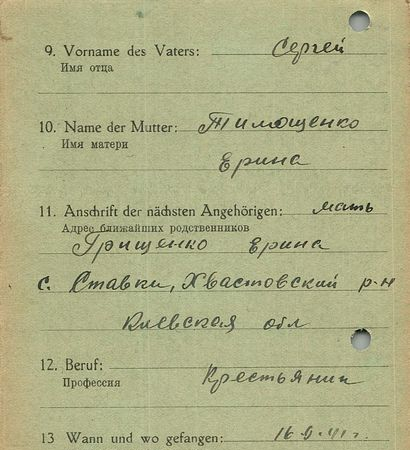 9. Vorname des Vaters: Сергей
Имя отца
10. Name der Mutter: Тимощенко
Имя матери
Ерина
11. Anschrift der nächsten Angehörigen: мать
Адрес ближайших родственников
Грищенко Ерина
с. Ставки, Хвастовский р-н
Киевская обл
12. Beruf: Крестьянин
Профессия
13 Wann und wo gefangen: 16.9.41г.